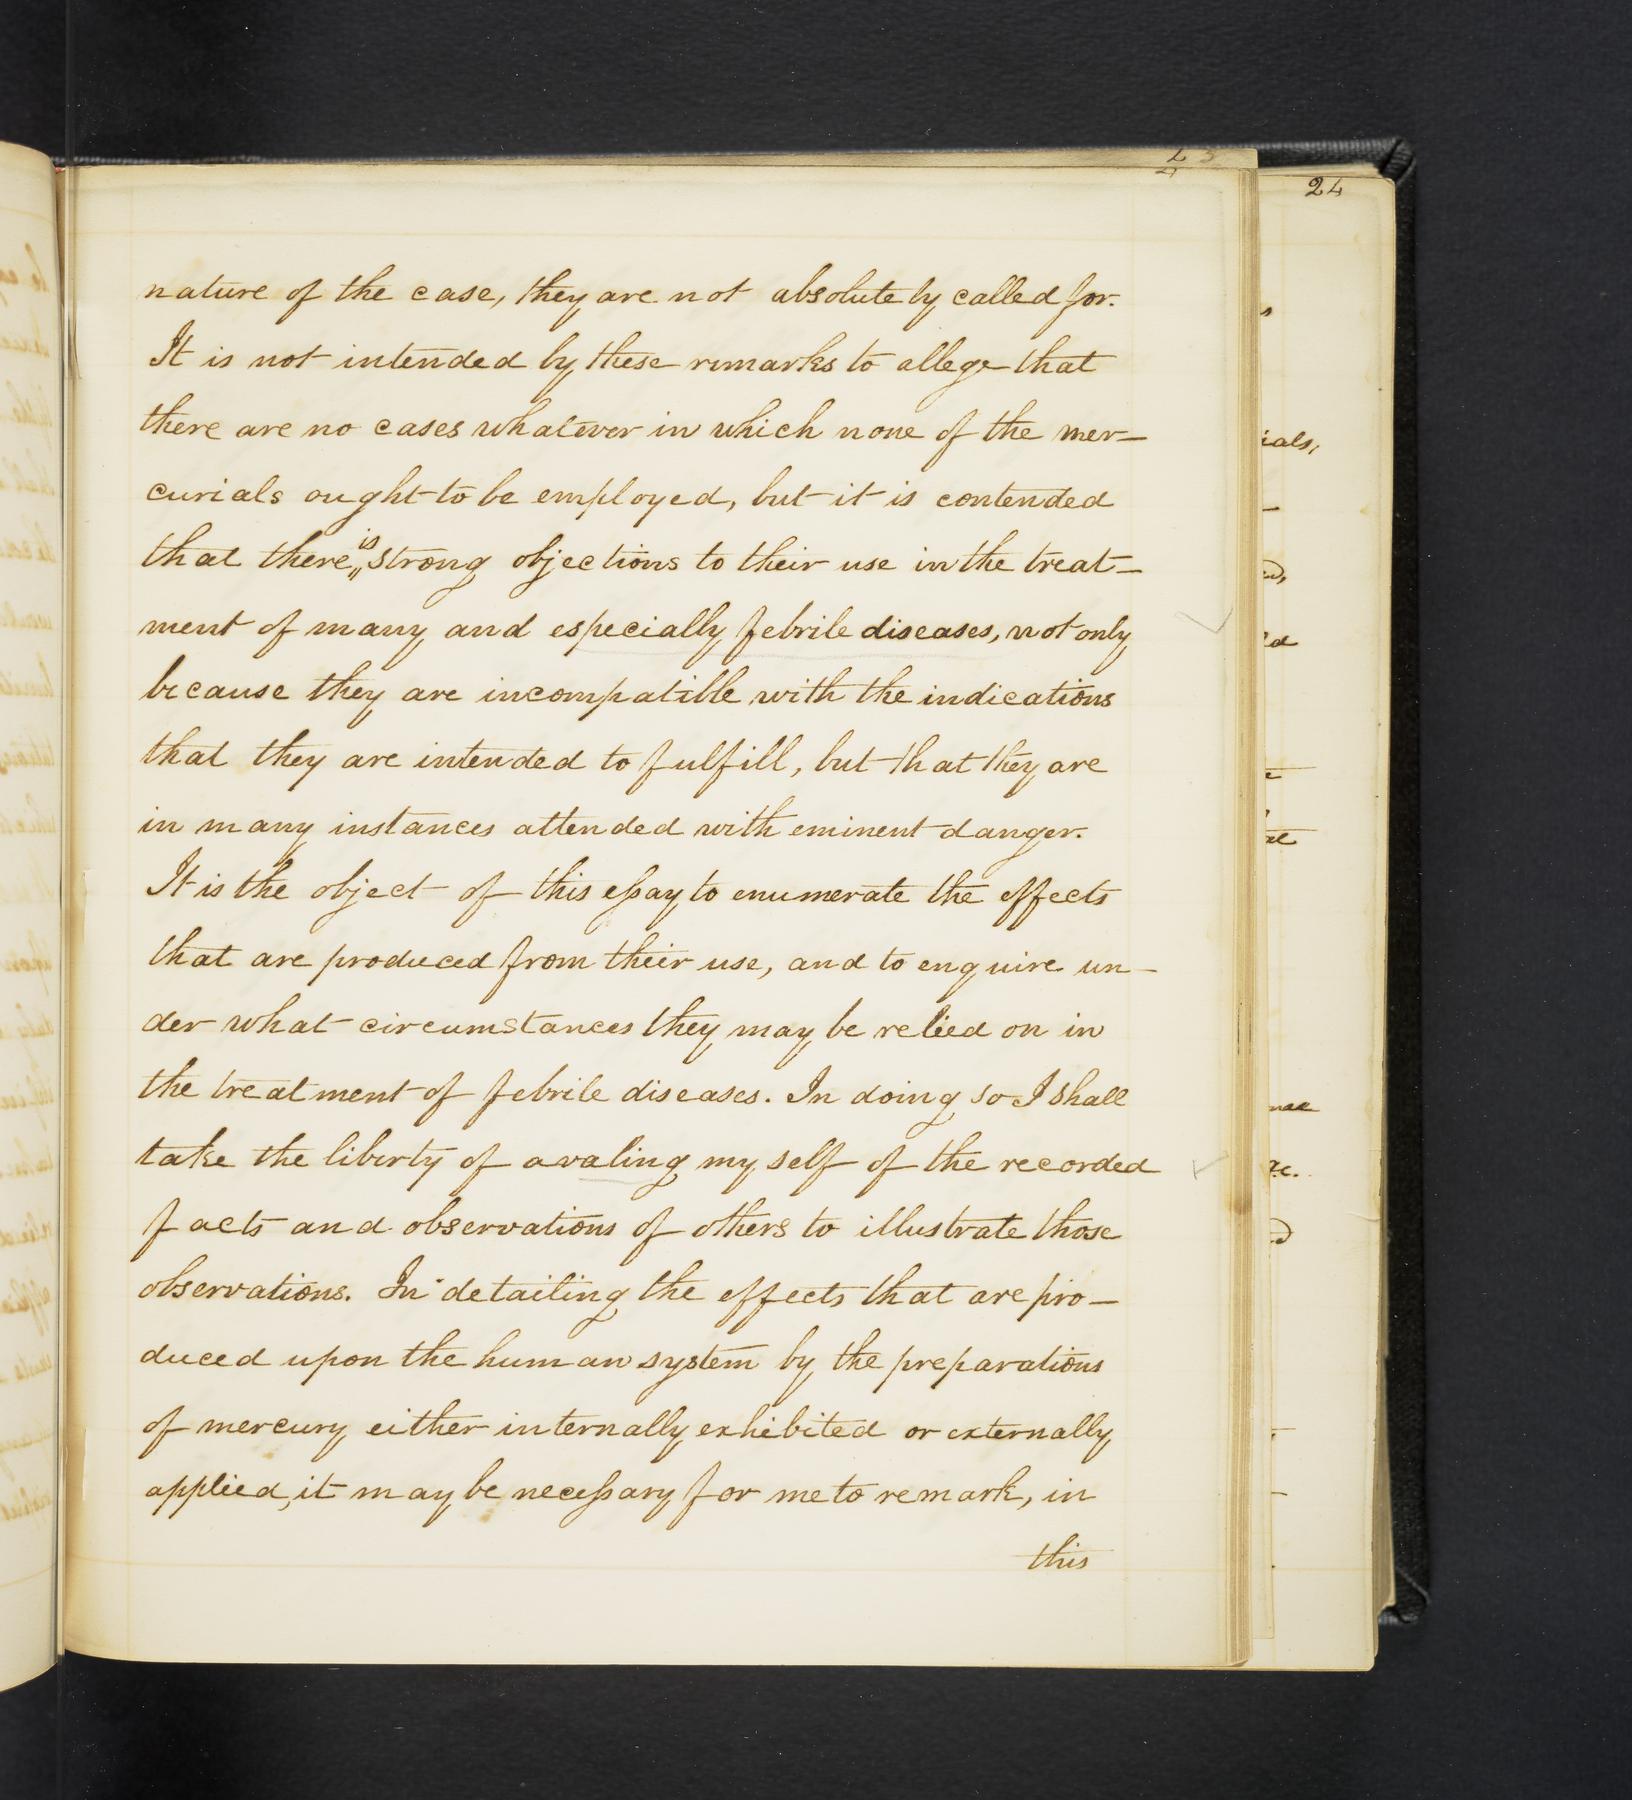 24
nature of the case, they are not absolutely called for.
It is not intended by these remarks to allege that
there are no cases whatever in which none of the mer-
curials ought to be employed, but it is contended
that there is strong objections to their use in the treat-
ment of many and especially febrile diseases, not only
because they are incompatible with the indications
that they are intended to fulfill, but that they are
in many instances attended with eminent danger.
It is the object of this essay to enumerate the effects
that are produced from their use, and to enquire un-
der what circumstances they may be relied on in
the treatment of febrile diseases. In doing so I shall
take the liberty of avaling my self of the recorded
facts and observations of others to illustrate those
observations. In detailing the effects that are pro-
duced upon the human system by the preparations
of mercury either internally exhibited or externally
applied, it may be necessary for me to remark, in
this